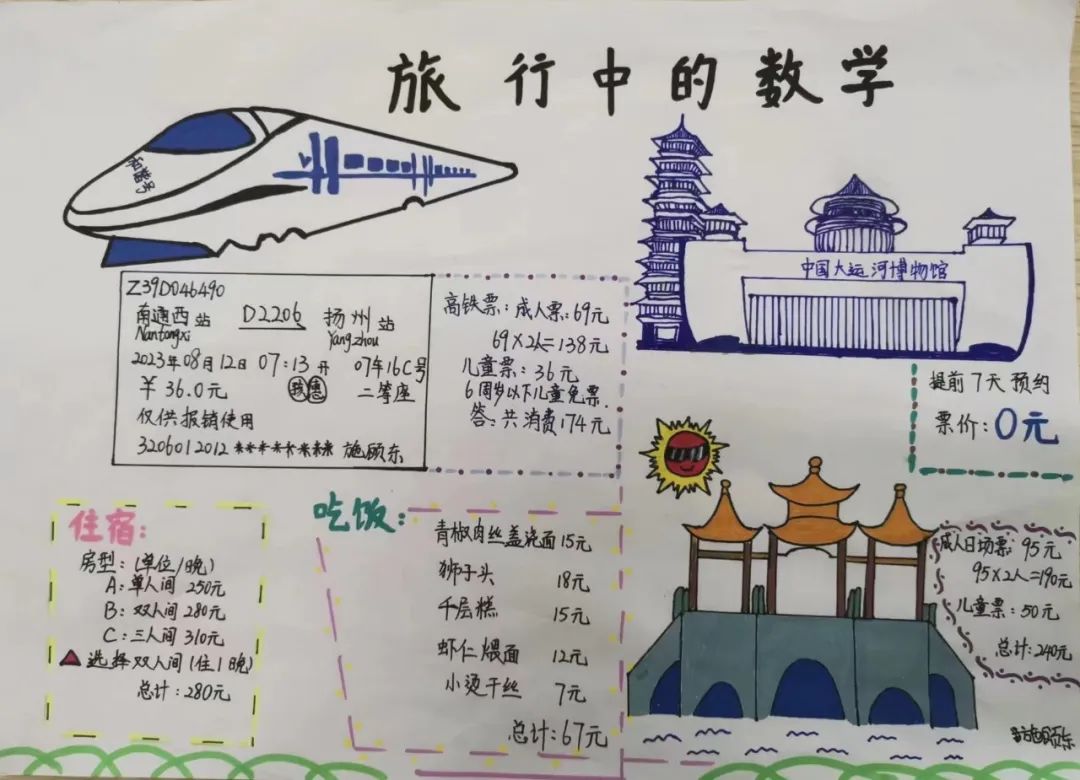 旅行中的数学
中国大运河博物馆
Z39D046490
南通西站 D2206 扬州站
Nantongxi Yangzhou
2023年08月12日 07:13开 07车16C号
￥36.0元 惠 二等座
仅供报销使用
3206012012******** 施顾东
高铁票:成人票:69元
69×2人=138元
儿童票:36元
6周岁以下儿童免票.
答:共消费174元
提前7天预约
票价:0元
住宿:
房型:(单位/晚)
A:单人间 250元
B:双人间 280元
C:三人间 310元
选择双人间(住1晚)
总计:280元
吃饭:
青椒肉丝盖浇面 15元
狮子头 18元
千层糕 15元
虾仁煨面 12元
小烫干丝 7元
总计:67元
成人日场票:95元
95×2人=190元
儿童票:50元
总计:240元
施顾东